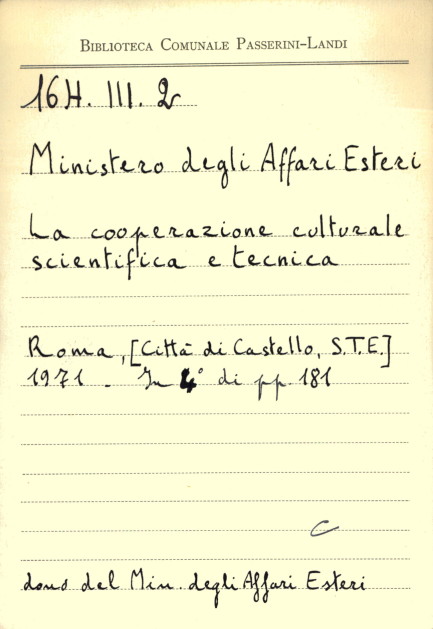 BIBLIOTECA COMUNALE PASSERINI-LANDI
16H. III. 2
Ministero degli Affari Esteri
La cooperazione culturale
scientifica e tecnica
Roma, [Città di Castello, S.T.E.]
1971 - In 4° di pp. 181
C
dono del Min. degli Affari Esteri